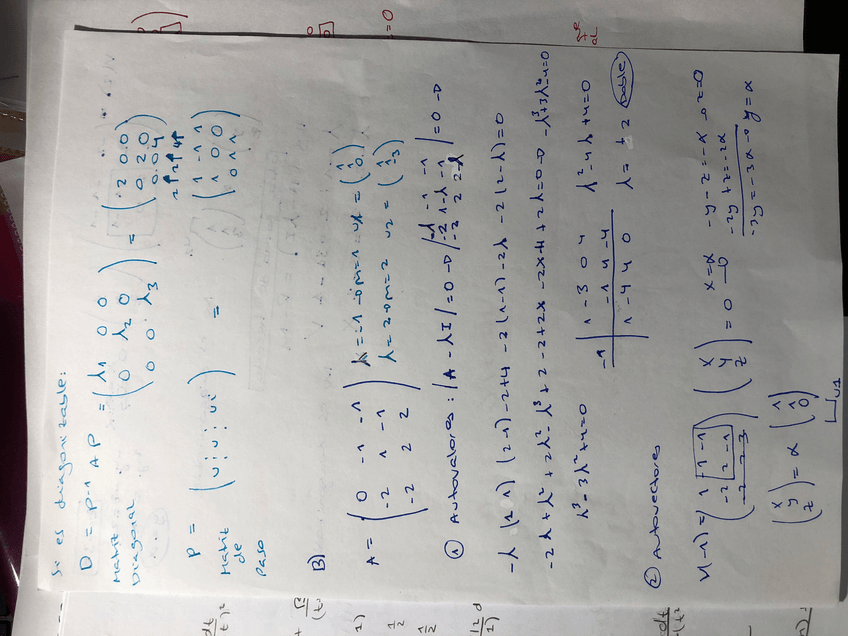 Si es diagonizable:
D = P-1 A P = (λ1 0 0 / 0 λ2 0 / 0 0 λ3) = (2 0 0 / 0 2 0 / 0 0 4)
Matriz
Diagonal
P = (v1 ⋮ v ⋮ vi) = (1 -1 1 / 1 0 0 / 0 1 1)
Matriz
de
Paso
B)
A = (0 -1 -1 / -2 1 -1 / -2 2 2)
λ = -1 → m=1 v1 = (1 1 0)
λ = 2 → m=2 v2 = (1 1 -3)
① Autovalores: |A - λI| = 0 → |-λ -1 -1 / -2 1-λ -1 / -2 2 2-λ| = 0 →
-2λ + λ² + 2λ² - λ³ + 2 - 2 + 2λ - 2λ + 4 + 2λ = 0 → -λ³ + 3λ² - 4 = 0
λ³ - 3λ² + 4 = 0
1 -3 0 4
-1 -1 4 -4
1 -4 4 0
λ² - 4λ + 4 = 0
λ = + 2 doble
② Autovectores
V(-1) = (1 -1 -1 / -2 2 -1 / -2 2 3) (x y z) = 0 →
x = α
-y - z = -α → z = 0
-2y + z = -2α
-3y = -3α → y = α
(x y z) = α (1 1 0)
v1